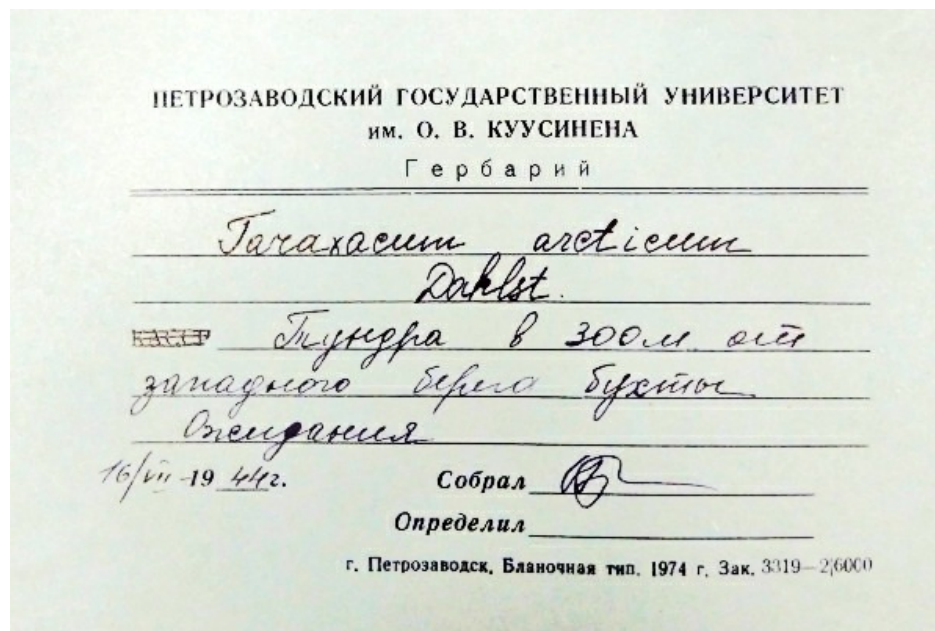 ПЕТРОЗАВОДСКИЙ ГОСУДАРСТВЕННЫЙ УНИВЕРСИТЕТ
им. О. В. КУУСИНЕНА
Гербарий
Taraxacum arcticum
Dahlst.
Тундра в 300 м от
западного берега бухты
Ожидания
16/VII 1944 г. Собрал
Определил
г. Петрозаводск. Бланочная тип. 1974 г. Зак. 3319—2/6000